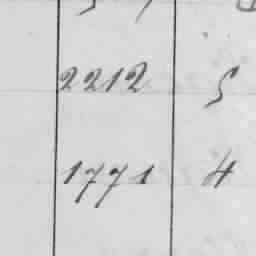 2212 5
1771 4